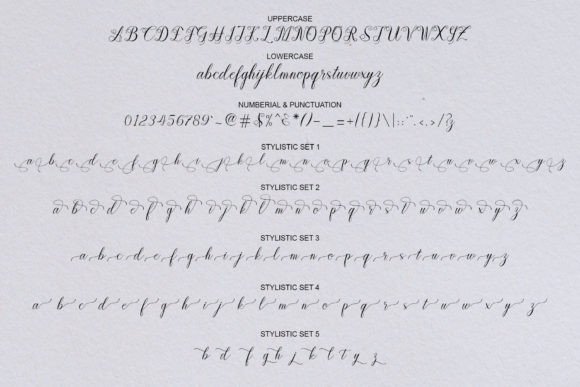 UPPERCASE
ABCDEFGHIJKLMNOPQRSTUVWXYZ
LOWERCASE
abcdefghijklmnopqrstuvwxyz
NUMBERIAL & PUNCTUATION
0123456789`~@#$%^&*()-_=+{()}\|:;'".<,>/?
STYLISTIC SET 1
a b c d e f g h i j k l m n o p q r s t u v w x y z
STYLISTIC SET 2
a b c d e f g h i j k l m n o p q r s t u v w x y z
STYLISTIC SET 3
a b c d e f g h i j k l m n o p q r s t u v w x y z
STYLISTIC SET 4
a b c d e f g h i j k l m n o p q r s t u v w x y z
STYLISTIC SET 5
b d f g h j k l t y z